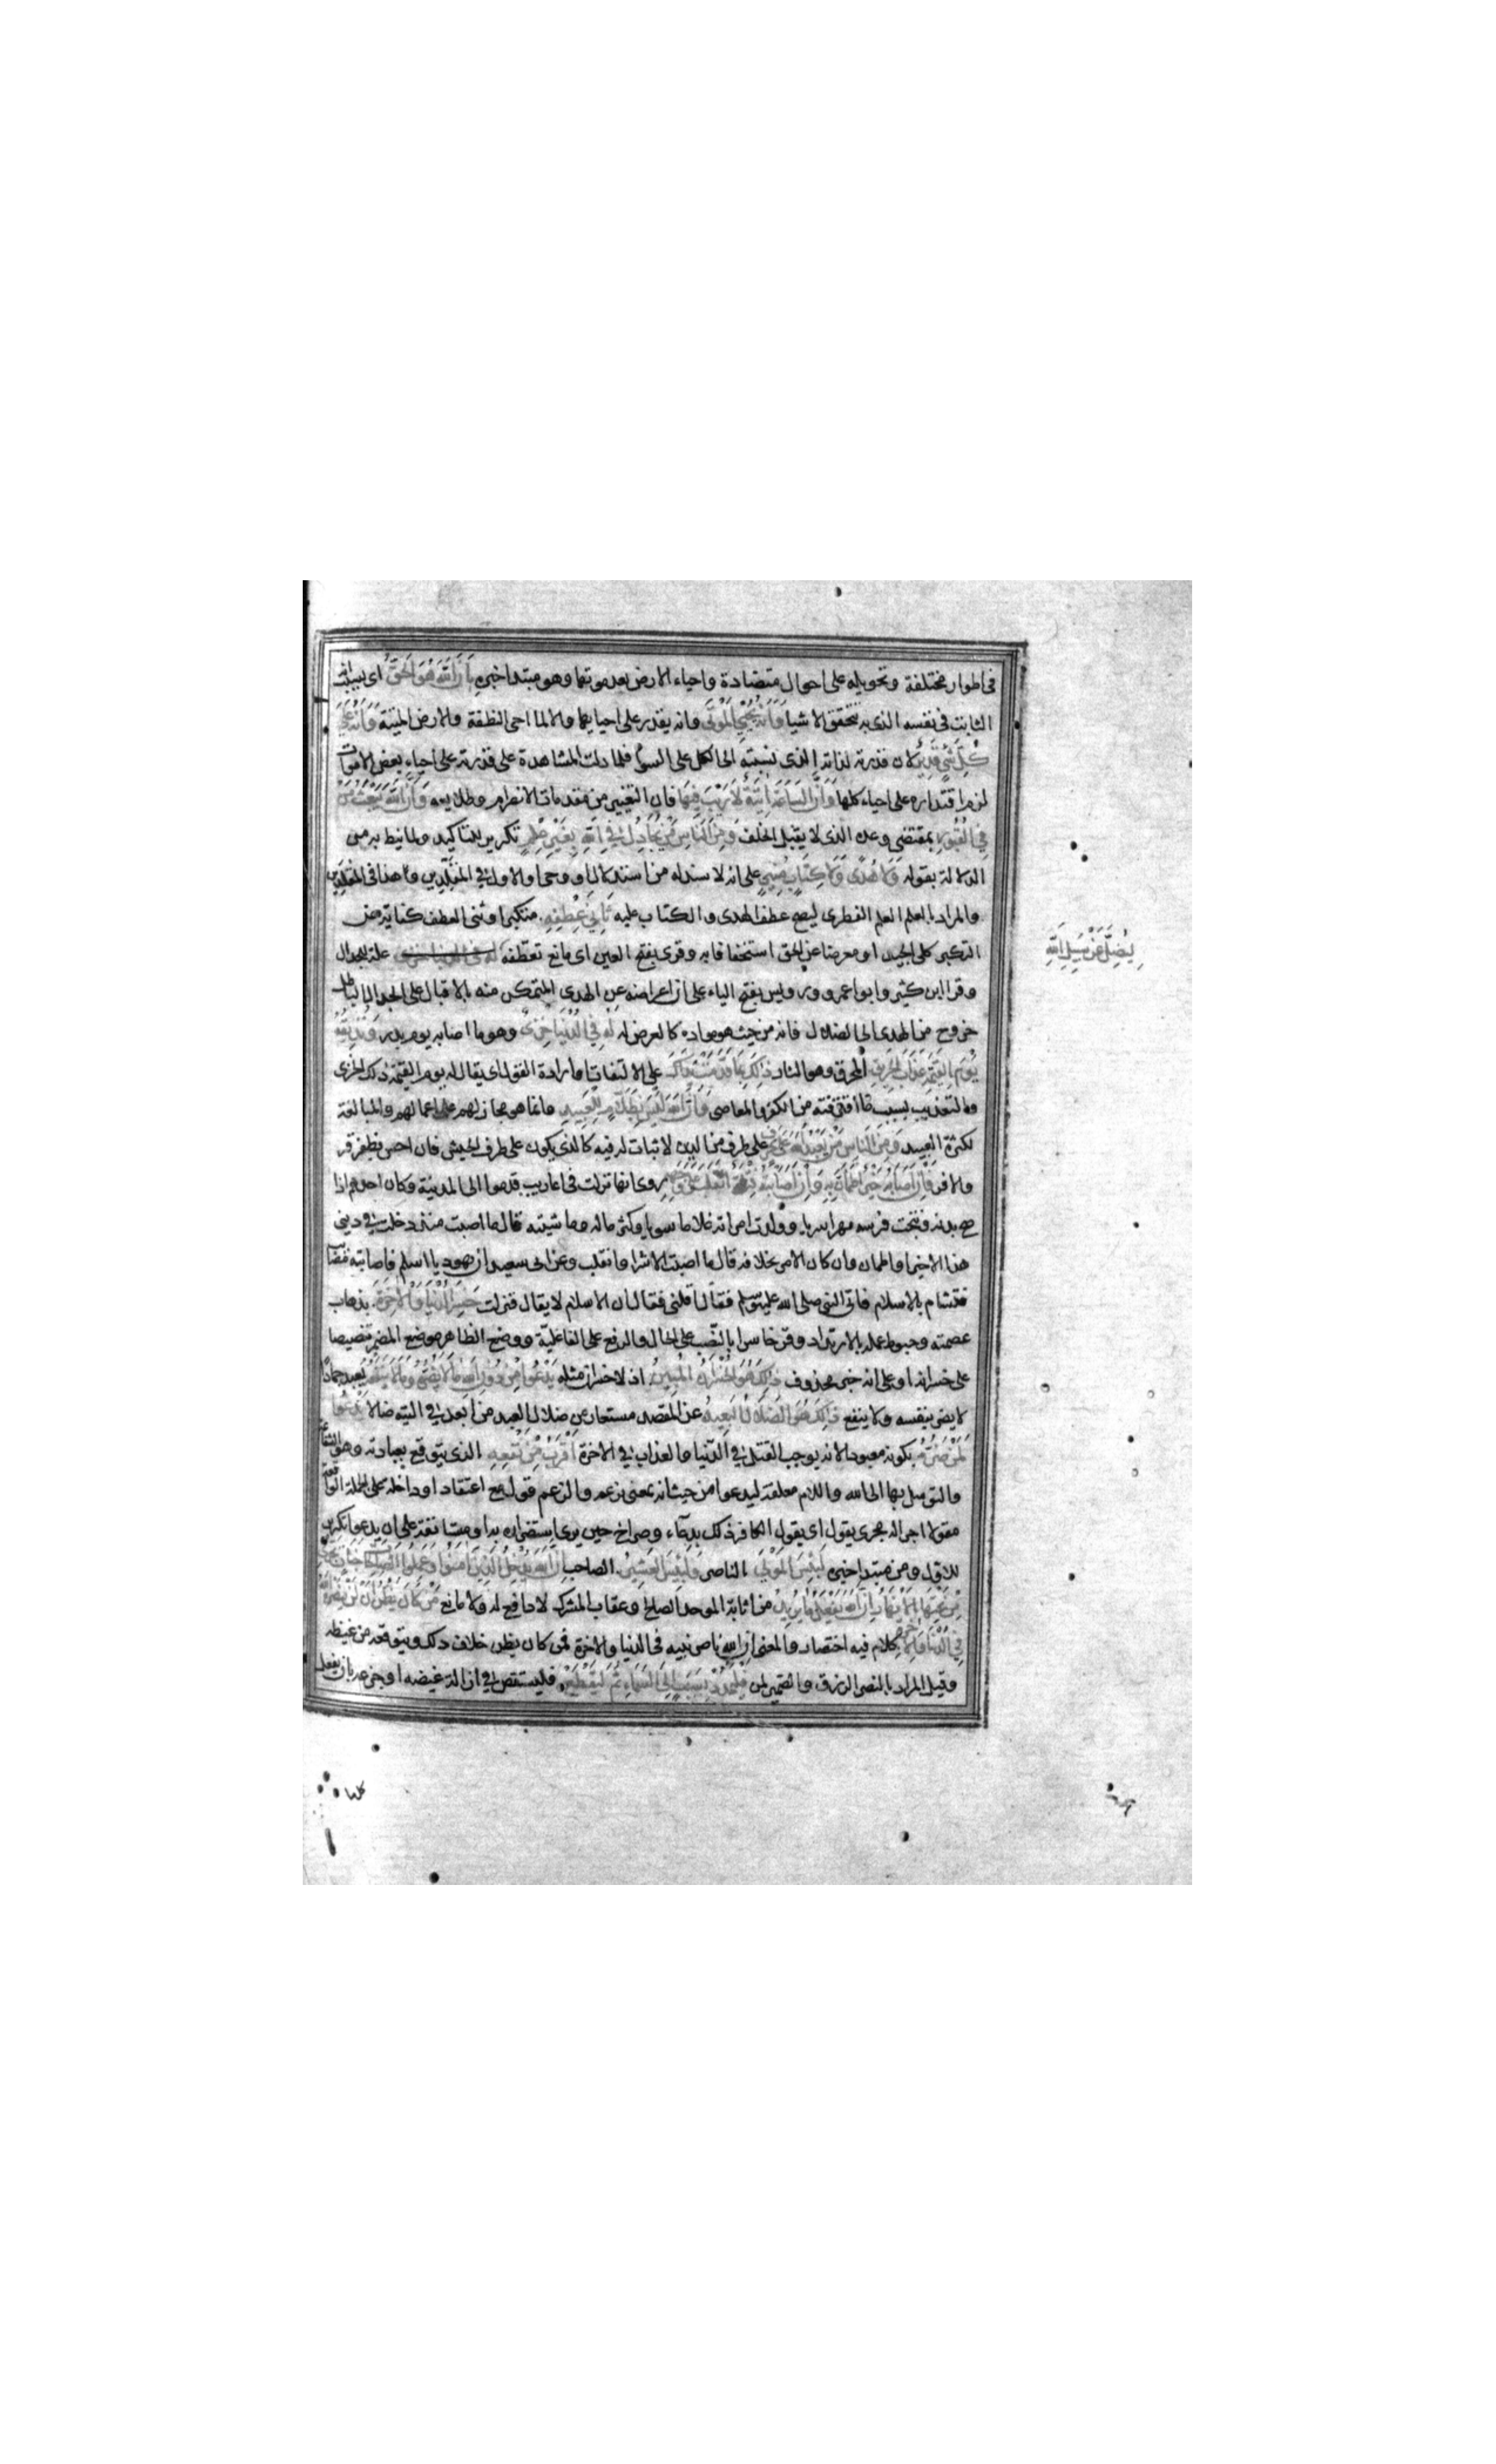 في اطوار مختلفة وتحويله على احوال متضادة واحياء الارض بعد موتها وهو مبتدا خبره بِاَنَّ اللهَ هُوَ الْحَقُّ اى بسبب انه
الثابت في نفسه الذى به تتحقق الاشيا وَاَنَّهُ يُحْيِي الْمَوْتَى وانه يقدر على احيايها والا لما احيى النطفة والارض الميتة وَاَنَّهُ عَلَى
كُلِّ شَيْءٍ قَدِيرٌ لان قدرته لذاته الذى نسبته الى الكل على السوآء فلما دلت المشاهدة على قدرته على احياء بعض الاموات
لزم اقتداره على احياء كلها وَاَنَّ السَّاعَةَ اتِيَةٌ لَا رَيْبَ فِيهَا فان التغيير من مقدمات الانصرام وطلايعه وَاَنَّ اللهَ يَبْعَثُ مَنْ
فِي الْقُبُورِ بمقتضى وعده الذى لا يقبل الخلف وَمِنَ النَّاسِ مَنْ يُجَادِلُ فِي اللهِ بِغَيْرِ عِلْمٍ تكرير للتاكيد ولما نيط به من
الدلالة بقوله وَلَا هُدًى وَلَا كِتَابٍ مُنِيرٍ على انه لا سند له من استدلال او وحى والاول في المقلدين وهذا في المقلدين
والمراد بالعلم العلم الفطرى ليصح عطف الهدى والكتاب عليه ثَانِيَ عِطْفِهِ متكبرا وثنى العطف كناية عن
التكبر كلى الجيد او معرضا عن الحق استخفافا به وقرى بفتح العين اى مانع تعطفه له في الدنيا خزى علة للجدال
وقرا ابن كثير وابوا عمرو ورويس بفتح الياء على ان اعراضه عن الهدى المتمكن منه بالاقبال على الجدال الباطل
خروج من الهدى الى الضلال فانه من حيث هو مواده كالغرض له لَهُ فِي الدُّنْيَا خِزْىٌ وهو ما اصابه يوم بدر وَنُذِيقُهُ
يَوْمَ الْقِيمَةِ عَذَابَ الْحَرِيقِ المحرق وهو النار ذَلِكَ بِمَا قَدَّمَتْ يَدَاكَ على الالتفات او ارادة القول اى يقال له يوم القيمة ذلك الخزى
والتعذيب بسبب ما اقترفته من الكفر والمعاصى وَاَنَّ اللهَ لَيْسَ بِظَلَّامٍ لِلْعَبِيدِ وانما هو مجاز لهم على اعمالهم والمبالغة
لكثرة العبيد وَمِنَ النَّاسِ مَنْ يَعْبُدُ اللهَ عَلَى حَرْفٍ على طرف من الدين لا ثبات له فيه كالذى يكون على طرف الجيش فان احس بظفر قر
والا فر فَاِنْ اَصَابَهُ خَيْرٌ اطْمَأَنَّ بِهِ وَاِنْ اَصَابَتْهُ فِتْنَةٌ انْقَلَبَ عَلَى وَجْهِهِ روى انها نزلت في اعاريب قدموا الى المدينة وكان احدهم اذا
صح بدنه ونتجت فرسه مهرا سريا وولدت امراته غلاما سويا وكثر ماله وماشيته قال ما اصبت منذ دخلت في دينى
هذا الا خيرا واطمان وان كان الامر بخلافه قال ما اصبت الا شرا وانقلب وعن ابى سعيد ان يهوديا اسلم فاصابته مصايب
فتشام بالاسلام فاتى النبى صلى الله عليه وسلم فقال اقلنى فقال ان الاسلام لا يقال فنزلت خَسِرَ الدُّنْيَا وَالْآخِرَةَ بذهاب
عصمته وحبوط عمله بالارتداد وقرى خاسرا بالنصب على الحال والرفع على الفاعلية ووضع الظاهر موضع المضمر تنصيصا
على خسرانه او على انه خبر محذوف ذَلِكَ هُوَ الْخُسْرَانُ الْمُبِينُ اذ لا خسران مثله يَدْعُوا مِنْ دُونِ اللهِ مَا لَا يَضُرُّهُ وَمَا لَا يَنْفَعُهُ يعبد جمادا
لا يضر بنفسه ولا ينفع ذَلِكَ هُوَ الضَّلَالُ الْبَعِيدُ عن المقصد مستعار من ضلال البعيد من ابعد في التيه ضالا يَدْعُوا
لَمَنْ ضَرُّهُ بكونه معبودا لانه يوجب القتل في الدنيا والعذاب في الاخرة اَقْرَبُ مِنْ نَفْعِهِ الذى يتوقع بعبادته وهو الشفاعة
والتوسل بها الى الله واللام معلقة ليدعوا من حيث انه بمعنى يزعم والزعم قول مع اعتقاد او داخلة على الجملة الواقعة
مقولا اجراله مجرى يقول اى يقول الكافر ذلك بدعاء وصراخ حين يرى استضراره به او مستانفة على ان يدعوا تكرير
للاول ومن مبتدا خبره لَبِئْسَ الْمَوْلَى الناصر وَلَبِئْسَ الْعَشِيرُ الصاحب اِنَّ اللهَ يُدْخِلُ الَّذِينَ امَنُوا وَعَمِلُوا الصَّالِحَاتِ جَنَّاتٍ تَجْرِى
مِنْ تَحْتِهَا الْاَنْهَارُ اِنَّ اللهَ يَفْعَلُ مَا يُرِيدُ من اثابة الموحد الصالح وعقاب المشرك لا دافع له ولا مانع مَنْ كَانَ يَظُنُّ اَنْ لَنْ يَنْصُرَهُ اللهُ
فِي الدُّنْيَا وَالْآخِرَةِ كلام فيه اختصار والمعنى ان الله ناصر نبيه في الدنيا والاخرة فمن كان يظن خلاف ذلك ويتوقعه من غيظه
وقيل المراد بالنصر الرزق والضمير لمن فَلْيَمْدُدْ بِسَبَبٍ اِلَى السَّمَاءِ ثُمَّ لْيَقْطَعْ فليستقص في ازالة غيضه او جزعه بان يفعل
لِيُضِلَّ عَنْ سَبِيلِ اللهِ